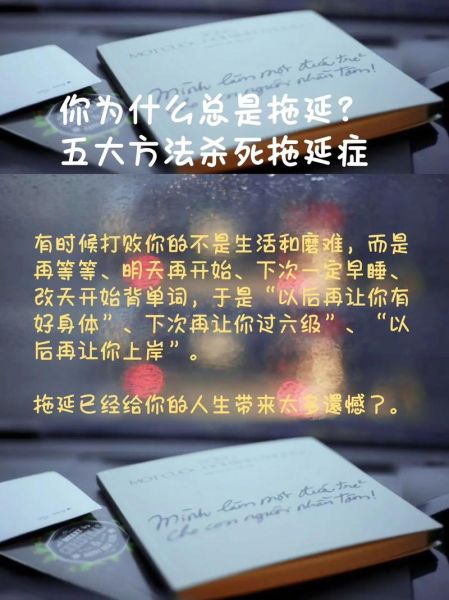 你为什么总是拖延？
五大方法杀死拖延症
有时候打败你的不是生活和磨难，而是
再等等、明天再开始、下次一定早睡、
改天开始背单词，于是“以后再让你有
好身体”、下次再让你过六级”、“以
后再让你上岸”。
拖延已经给你的人生带来太多遗憾了。
Mình làm một đứa trẻ
cho con người nhẫn tâm!